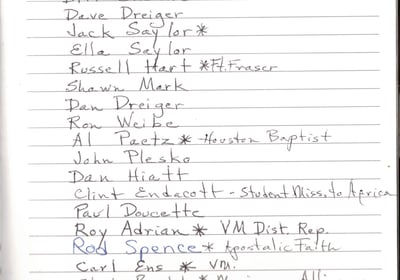 Dave Dreiger
Jack Saylor*
Ella Saylor
Russell Hart *Ft.Fraser
Shawn Mark
Dan Dreiger
Ron Weibe
Al Paetz * Houston Baptist
John Plesko
Dan Hiatt
Clint Endacott - Student Miss. to Africa
Paul Doucette
Roy Adrian * VM Dist. Rep.
Rod Spence * Apostalic Faith
Carl Ens * VM.